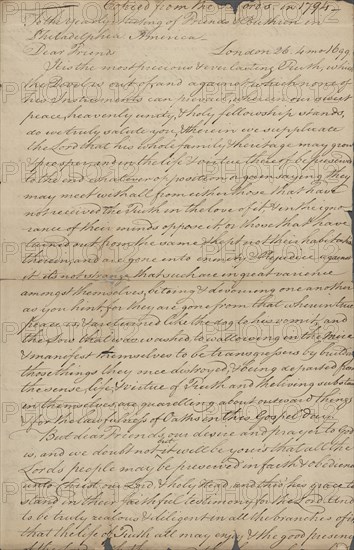 Copied from the Records in 1794
To the yearly Meeting of Friends & Brethren in
Philadelphia America
Dear Friend London 26 4 mo 1699
In his most precious & everlasting Truth, which
the Devil is out of, and against which none of
his Instruments can prevail, wherein our sweet
peace, heavenly unity, & holy fellowship stands,
do we truly salute you, Wherein we supplicate
the Lord that his whole family & heritage may grow
& prosper, and in the life & virtue thereof be preserved
to the end whatever opposition or gainsaying they
may meet withall from either those that have
not received the Truth in the love of it & in the igno-
rance of their minds oppose it or those that have
turned out from the same & kept not their habitation
therein, and are gone into enmity & Prejudice against
it its not strange that such are in great variance
amongst themselves, biting & devouring one another
as you hint for they are gone from that wherein true
peace is and are turned like the dog to his vomit, and
the Sow that was washed to wallowing in the mire
& manifest themselves to be transgressors by building
those things they once destroyed & being departed from
the sense, life & virtue of Truth and the living substance
in themselves, are quarrelling about outward things
& for the lawfulness of Oaths in this Gospel day
But dear Friends our desire and prayer to God
is, and we doubt not it will be yours that all the
Lords people may be preserved in faith & obedience
unto Christ our Lord & holy Head and this his grace to
stand in their faithful testimony for the Lord. And
to be truly zealous & diligent in all the branches of it
that the life of Truth all may enjoy & the good presence